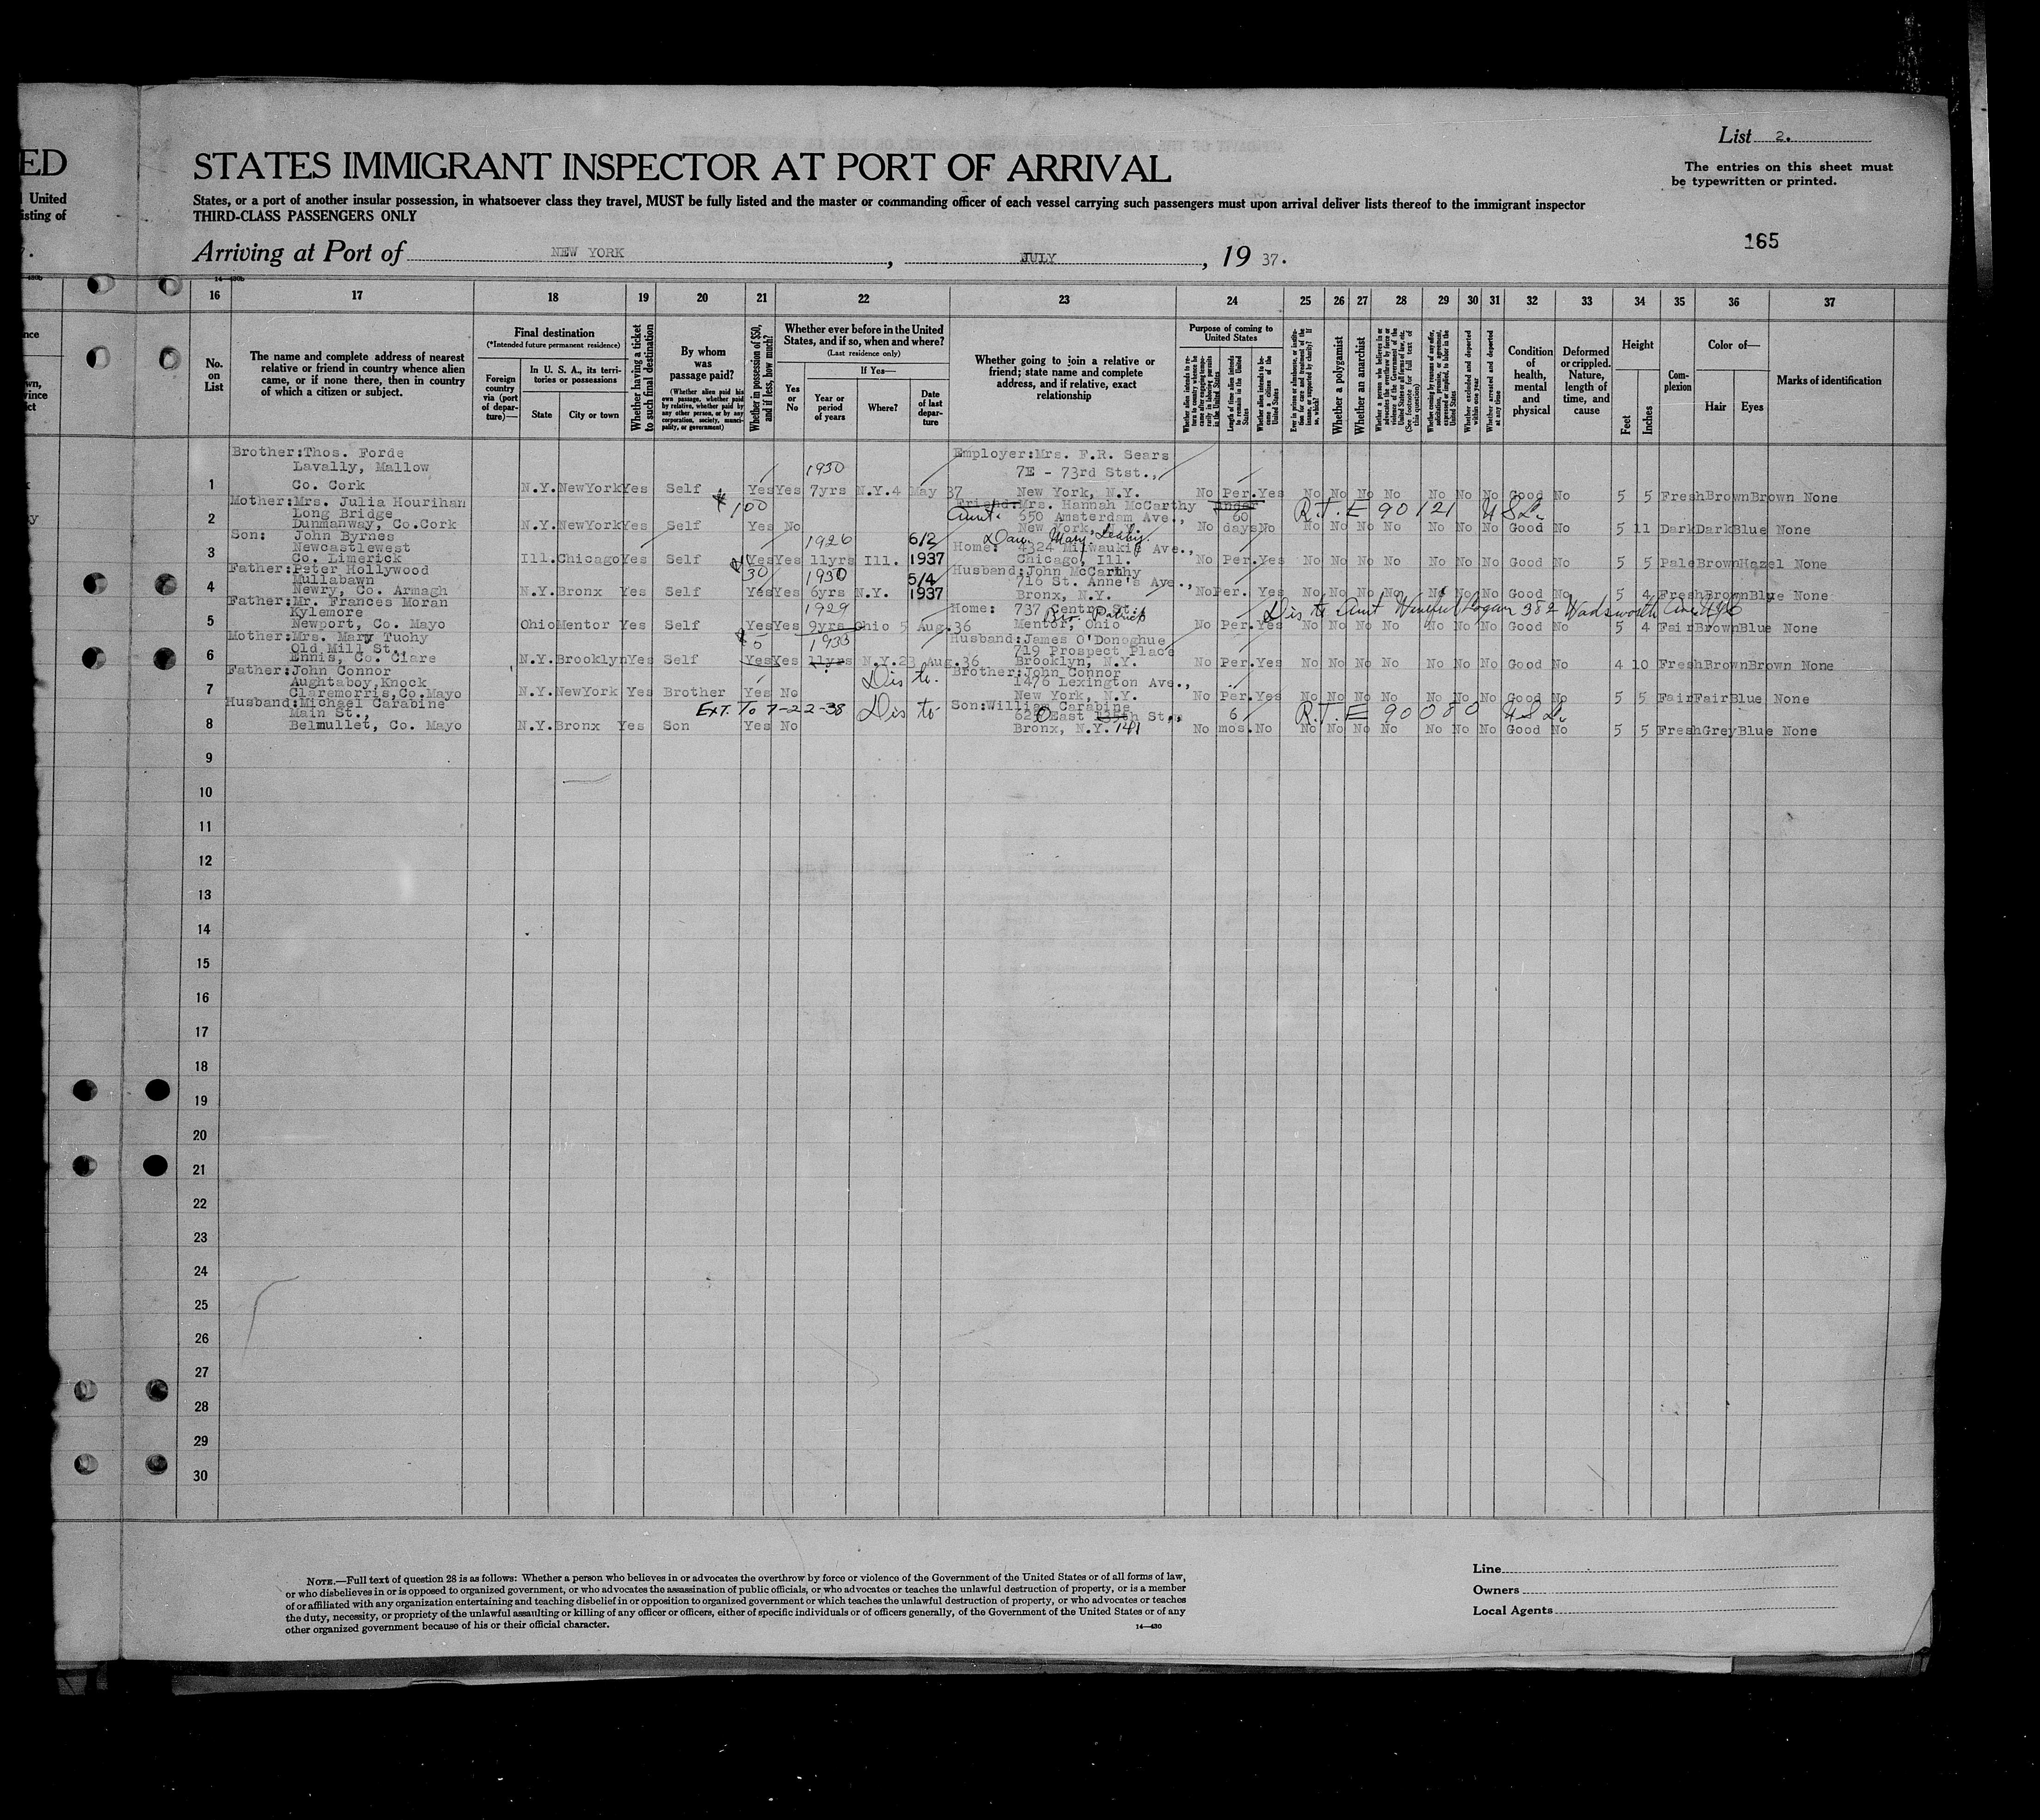 List 2.
ED
STATES IMMIGRANT INSPECTOR AT PORT OF ARRIVAL
The entries on this sheet must
be typewritten or printed.
United
isting of
States, or a port of another insular possession, in whatsoever class they travel, MUST be fully listed and the master or commanding officer of each vessel carrying such passengers must upon arrival deliver lists thereof to the immigrant inspector
THIRD-CLASS PASSENGERS ONLY
165
Arriving at Port of NEW YORK , JULY , 19 37.
16 17 18 19 20 21 22 23 24 25 26 27 28 29 30 31 32 33 34 35 36 37
No. on List
The name and complete address of nearest
relative or friend in country whence alien
came, or if none there, then in country
of which a citizen or subject.
Final destination
(*Intended future permanent residence)
Foreign country via (port of departure)—
In U. S. A., its territories or possessions
State
City or town
Whether having a ticket to such final destination
By whom was passage paid?
(Whether alien paid his own passage, whether paid by relative, whether paid by any other person, or by any corporation, society, municipality, or government)
Whether in possession of $50, and if less, how much?
Whether ever before in the United States, and if so, when and where?
(Last residence only)
Yes or No
If Yes—
Year or period of years
Where?
Date of last departure
Whether going to join a relative or
friend; state name and complete
address, and if relative, exact
relationship
Purpose of coming to United States
Length of time alien intends to remain in the United States
Whether alien intends to become a citizen of the United States
Whether a polygamist
Whether an anarchist
Whether excluded and deported within one year
Whether arrested and deported at any time
Condition of health, mental and physical
Deformed or crippled. Nature, length of time, and cause
Height
Feet
Inches
Complexion
Color of—
Hair
Eyes
Marks of identification
Brother:Thos. Forde
Lavally, Mallow
1 Co. Cork N.Y. NewYork Yes Self Yes Yes 1930 7yrs N.Y. 4 May 37
Employer:Mrs. F.R. Sears
7E - 73rd Stst.,
New York, N.Y. No Per. Yes No No No No No No No Good No 5 5 Fresh Brown Brown None
Mother:Mrs. Julia Hourihan
Long Bridge
2 Dunmanway, Co.Cork N.Y. NewYork Yes Self $100 Yes No
Friend:Mrs. Hannah McCarthy
Aunt. 650 Amsterdam Ave.,
New York, N.Y. No 60 days No R.T.E 90121 No No No No No No No Good No 5 11 Dark Dark Blue None
Son: John Byrnes
Newcastlewest
3 Co. Limerick Ill. Chicago Yes Self Yes Yes 1926 11yrs Ill. 6/2 1937
Home: 4324 Milwaukie Ave.,
Chicago, Ill. No Per. Yes No No No No No No No Good No 5 5 Pale Brown Hazel None
Father:Peter Hollywood
Mullabawn
4 Newry, Co. Armagh N.Y. Bronx Yes Self $30 Yes Yes 1930 6yrs N.Y. 5/4 1937
Husband:John McCarthy
716 St. Anne's Ave.,
Bronx, N.Y. No Per. Yes No No No No No No No Good No 5 4 Fresh Brown Blue None
Father:Mr. Frances Moran
Kylemore
5 Newport, Co. Mayo Ohio Mentor Yes Self Yes Yes 1929 9yrs Ohio 5 Aug.36
Home: 737 Centre St.,
Bro. Patrick
Mentor, Ohio No Per. Yes No No No No No No No Good No 5 4 Fair Brown Blue None
Dis to Aunt Logan 382 Wadsworth Ave NYC
Mother:Mrs. Mary Tuohy
Old Mill St.,
6 Ennis, Co. Clare N.Y. Brooklyn Yes Self $5 Yes Yes 1933 11yrs N.Y. 23 Aug.36
Husband:James O'Donoghue
719 Prospect Place
Brooklyn, N.Y. No Per. Yes No No No No No No No Good No 4 10 Fresh Brown Brown None
Father:John Connor
Aughtaboy,Knock
7 Claremorris,Co.Mayo N.Y. NewYork Yes Brother Yes No Dis to.
Brother:John Connor
1476 Lexington Ave.,
New York, N.Y. No Per. Yes No No No No No No No Good No 5 5 Fair Fair Blue None
Husband:Michael Carabine
Main St.,
8 Belmullet, Co. Mayo N.Y. Bronx Yes Son Yes No
EXT. To 7-22-38 Dis to
Son:William Carabine
620 East 135th St.,
Bronx, N.Y. 141 No 6 mos. No R.T.E 90080 No No No No No No No Good No 5 5 Fresh Grey Blue None
9
10
11
12
13
14
15
16
17
18
19
20
21
22
23
24
25
26
27
28
29
30
NOTE.—Full text of question 28 is as follows: Whether a person who believes in or advocates the overthrow by force or violence of the Government of the United States or of all forms of law,
or who disbelieves in or is opposed to organized government, or who advocates the assassination of public officials, or who advocates or teaches the unlawful destruction of property, or is a member
of or affiliated with any organization entertaining and teaching disbelief in or opposition to organized government or which teaches the unlawful destruction of property, or who advocates or teaches
the duty, necessity, or propriety of the unlawful assaulting or killing of any officer or officers, either of specific individuals or of officers generally, of the Government of the United States or of any
other organized government because of his or their official character.
14—430
Line
Owners
Local Agents